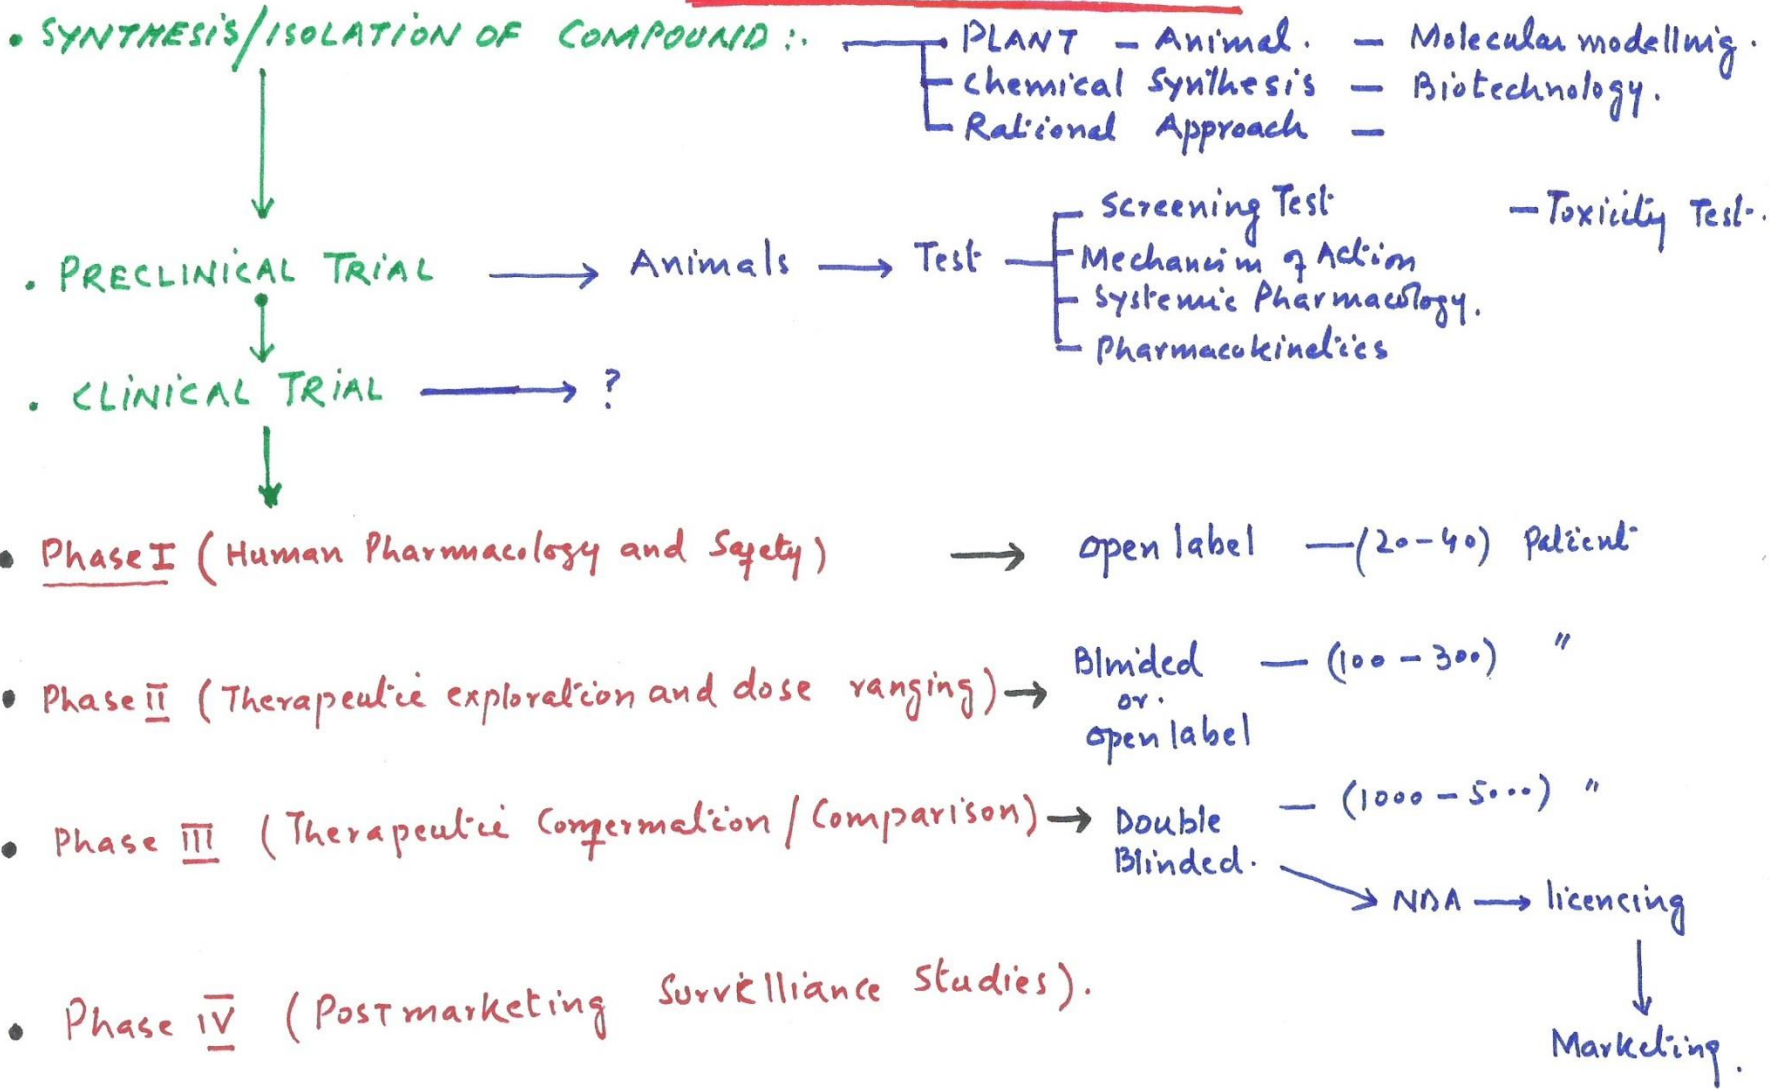 • SYNTHESIS/ISOLATION OF COMPOUND :. PLANT - Animal. - Molecular modelling.
Chemical Synthesis - Biotechnology.
Rational Approach -
Screening Test - Toxicity Test.
. PRECLINICAL TRIAL → Animals → Test Mechanism of Action
Systemic Pharmacology.
Pharmacokinetics
. CLINICAL TRIAL → ?
• Phase I (Human Pharmacology and Safety) → open label - (20-40) Patient
• Phase II (Therapeutic exploration and dose ranging) → Blinded - (100-300) "
or.
open label
• Phase III (Therapeutic Confermation/Comparison) → Double - (1000-5000) "
Blinded.
NDA → licencing
• Phase IV (Postmarketing Survilliance Studies).
Marketing.